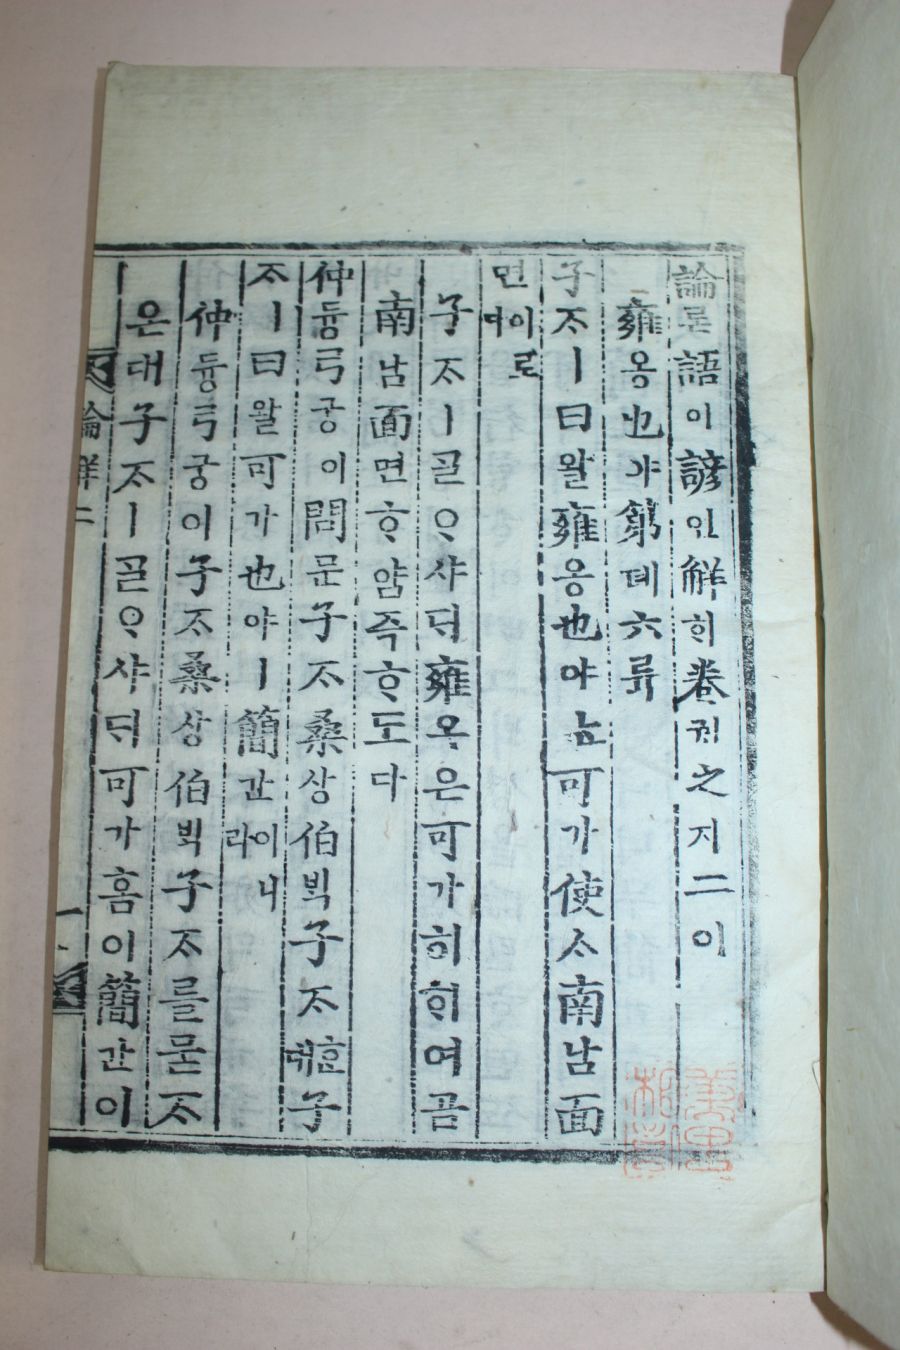 論론語어諺언解ᄒᆡ卷권之지二이
雍옹也야第뎨六륙
子ᄌᆞㅣ曰왈雍옹也야ᄂᆞᆫ可가使ᄉᆞ南남面
면이로다
子ᄌᆞㅣᄀᆞᆯᄋᆞ샤ᄃᆡ雍옹은可가히ᄒᆞ여곰
南남面면ᄒᆞ얌즉ᄒᆞ도다
仲듕弓궁이問문子ᄌᆞ桑상伯ᄇᆡᆨ子ᄌᆞᄒᆞᆫ대子
ᄌᆞㅣ曰왈可가也야ㅣ簡간이니라
仲듕弓궁이子ᄌᆞ桑상伯ᄇᆡᆨ子ᄌᆞ를묻ᄌᆞ
온대子ᄌᆞㅣᄀᆞᆯᄋᆞ샤ᄃᆡ可가홈이簡간이
論解二
一